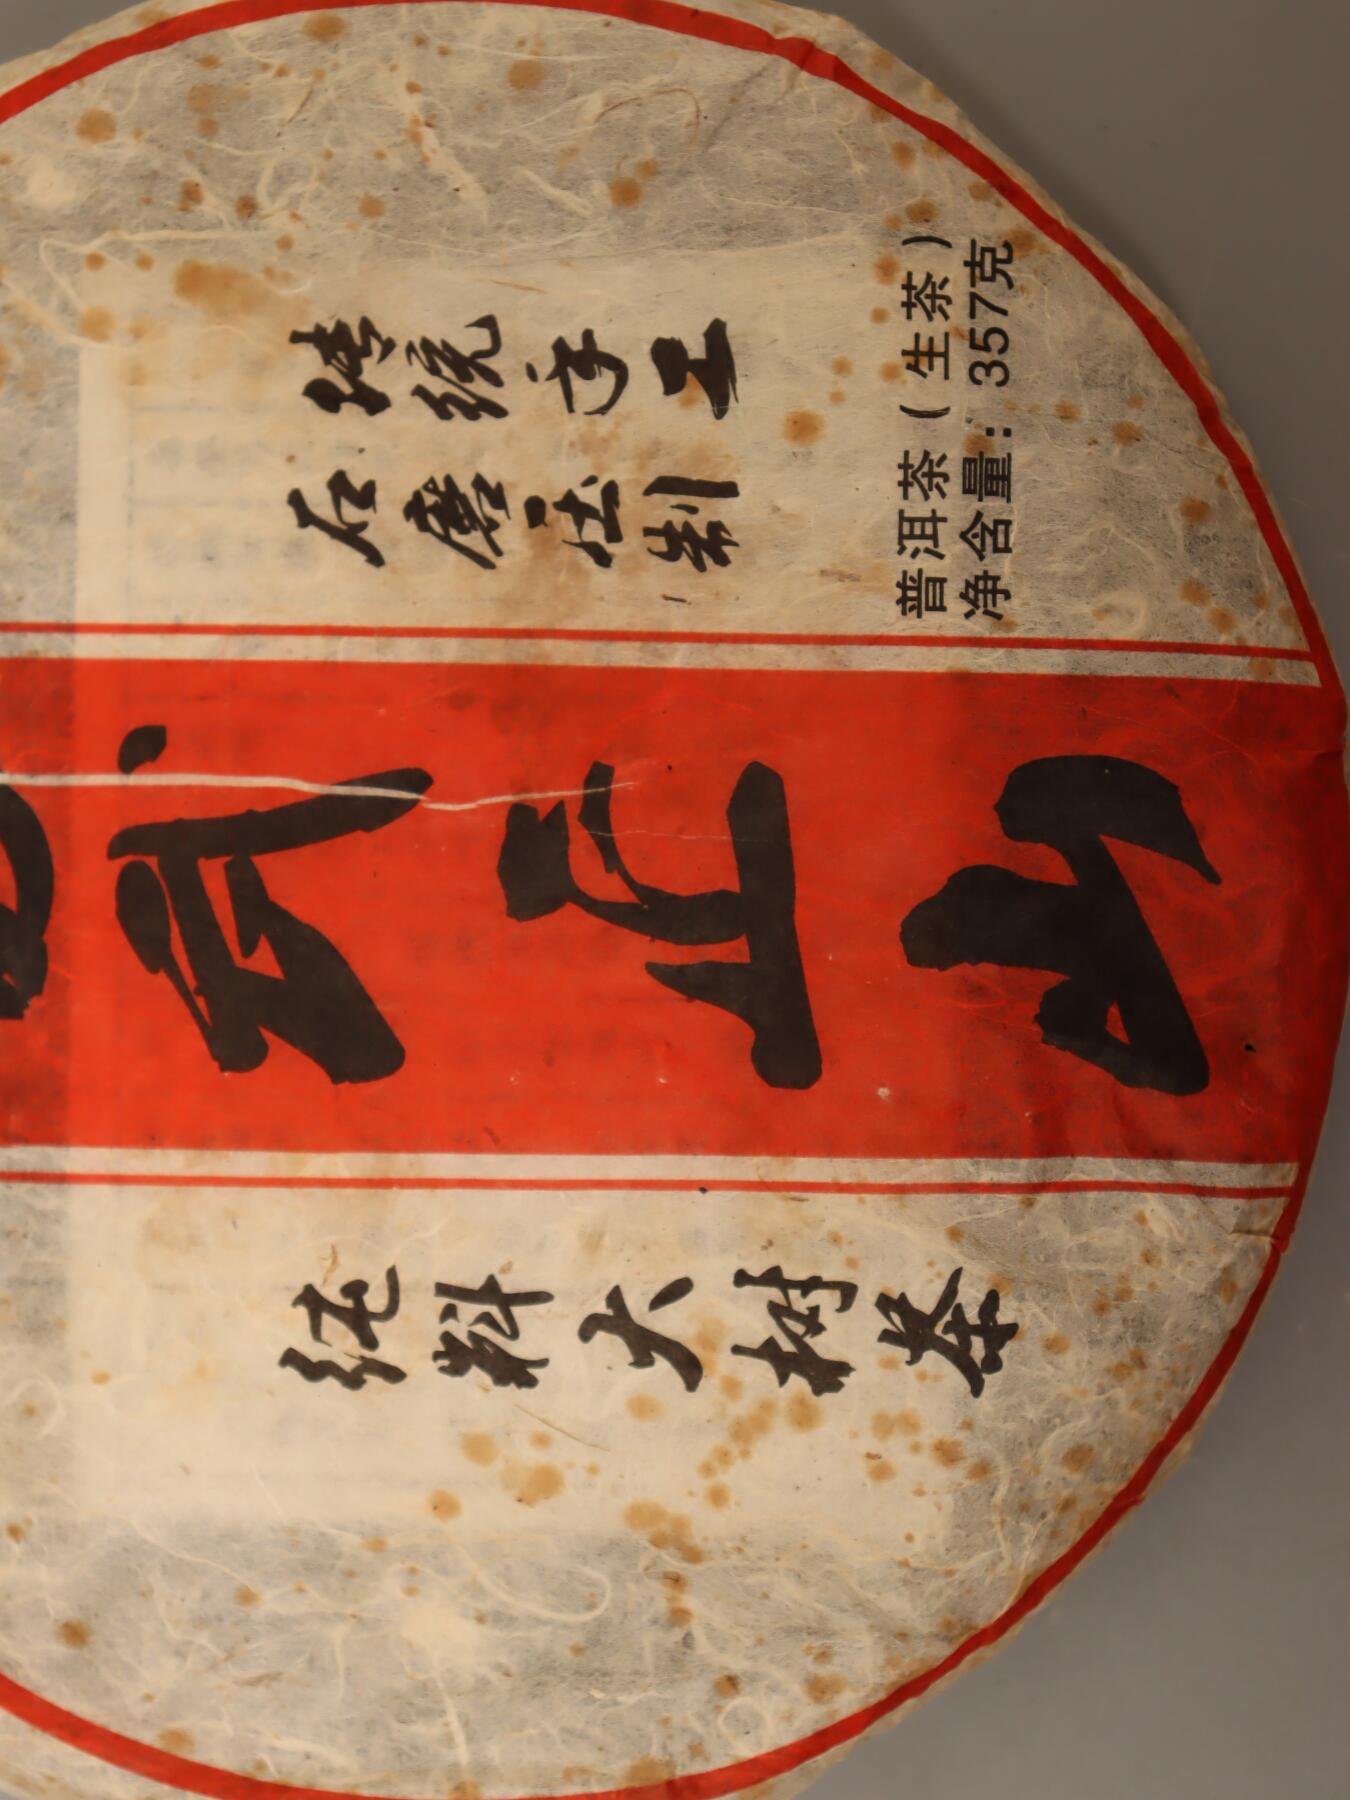 傳統手工
石磨压制
武正山
純料大樹茶
普洱茶（生茶）
净含量：357克